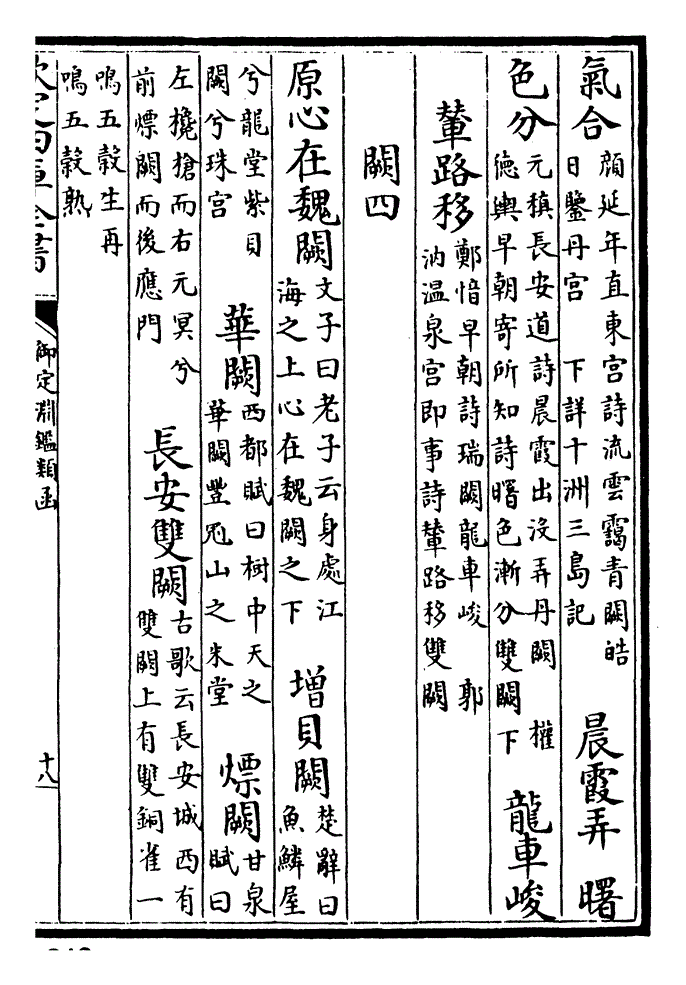 氣合顔延年直東宫詩流雲靄青闕皓日鑒丹宫　下詳十洲三島記　晨霞弄　曙
色分元稹長安道詩晨霞出没弄丹闕　權德輿早朝寄所知詩曙色漸分雙闕下　龍車峻
輦路移鄭愔早朝詩瑞闕龍車峻　郭汭温泉宫即事詩輦路移雙闕
闕四
原心在魏闕文子曰老子云身處江海之上心在魏闕之下　増貝闕楚辭曰魚鱗屋
兮龍堂紫貝闕兮珠宫　華闕西都賦曰樹中天之華闕豐冠山之朱堂　熛闕甘泉賦曰
左欃槍而右元冥兮前熛闕而後應門　長安雙闕古歌云長安城西有雙闕上有雙銅雀一
鳴五榖生再鳴五榖熟
欽定四庫全書
御定淵鑑類函
十八